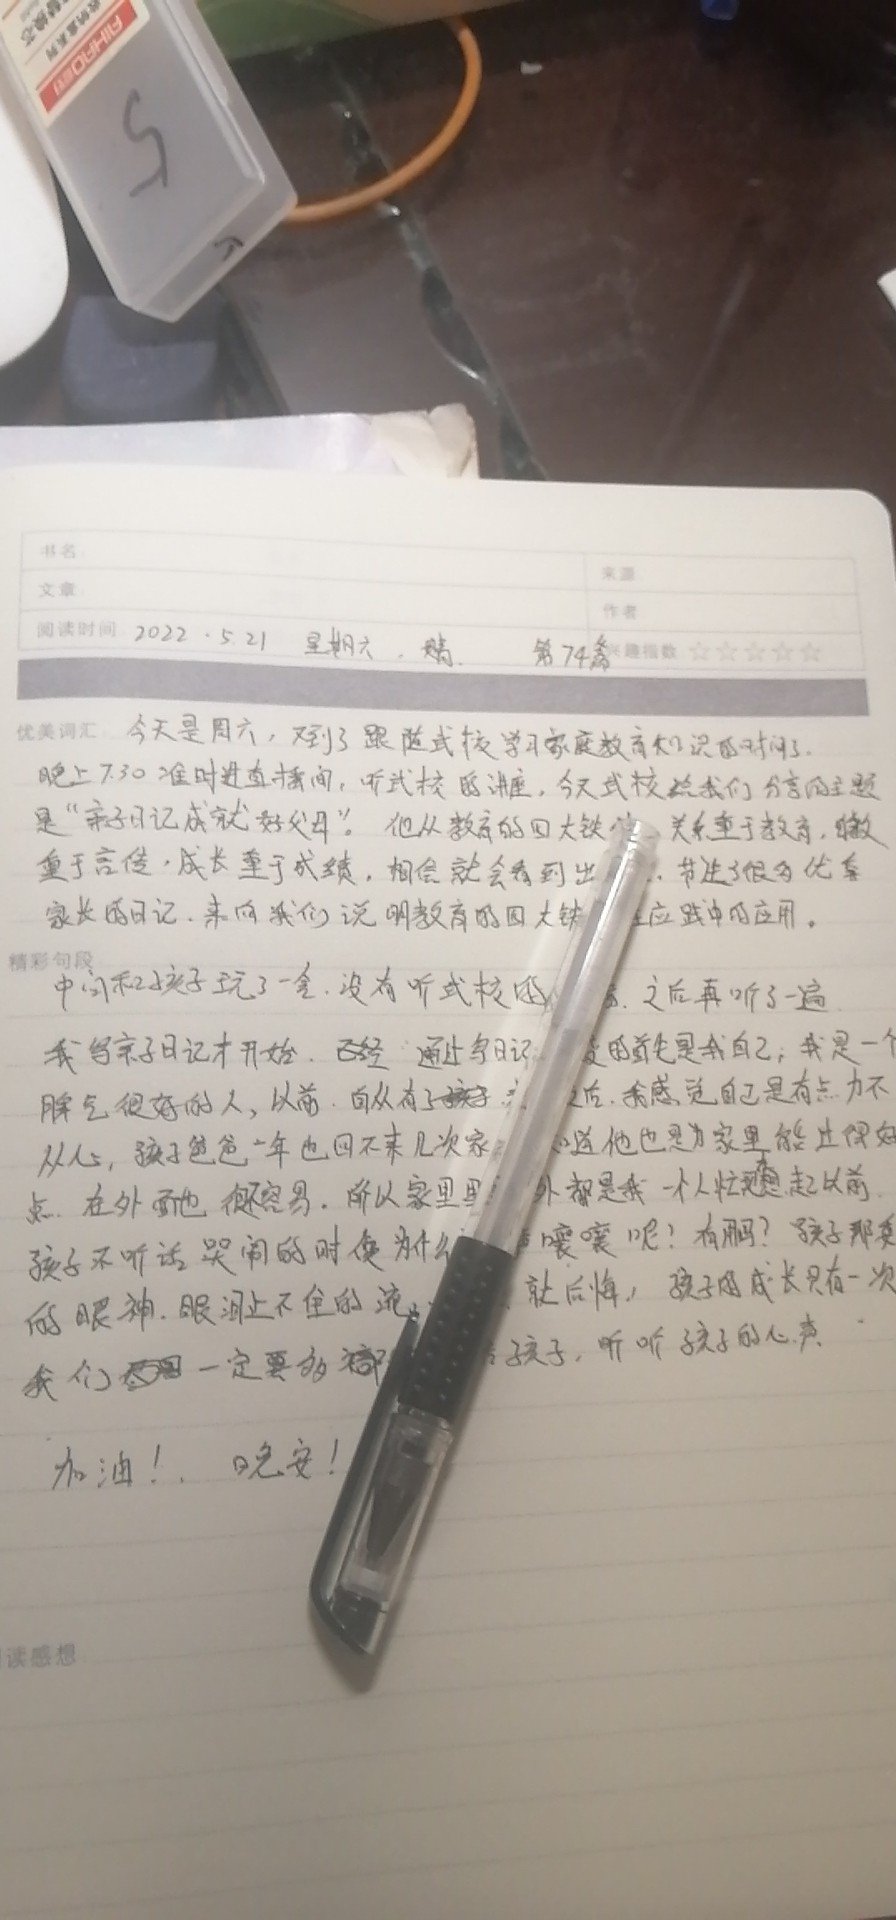 5
书名
来源
文章
作者
阅读时间 2022.5.21 星期六.晴. 第74篇 兴趣指数
优美词汇 今天是周六，又到了跟随式校学习家庭教育知识的时间了.
晚上7.30准时进直播间，听式校的讲座，今天式校给我们分享的主题
是“亲子日记成就好父母”。他从教育的四大铁 关系重于教育，身教
重于言传，成长重于成绩，相信就会看到出发.节选了很多优秀
家长的日记.来向我们说明教育的四大铁 应用。
精彩句段
中间和孩子玩了一会.没有听式校的 之后再听了一遍
我写亲子日记才开始. 已经 通过写日记 的首先是我自己，我是一个
脾气很好的人，以前.自从有了 之后.我感觉自己是有点力不
从心，孩子爸爸一年也回不来几次家 他也是为家里能过得好
点.在外面也很不容易.所以家里里 外都是我一个人忙 想起以前
孩子不听话哭闹的时候为什么 嚷嚷呢？有用吗？孩子那
的眼神.眼泪止不住的流 就后悔，孩子的成长只有一次
我们 一定要多 孩子，听听孩子的心声.
加油！. 晚安！
读感想